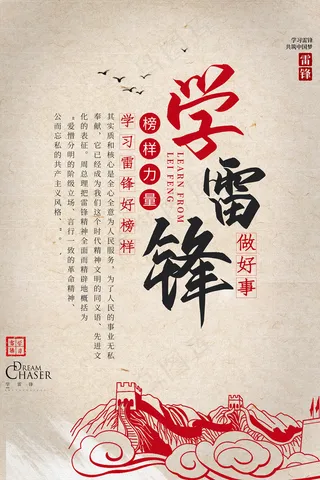 学习雷锋
共筑中国梦
雷锋
学雷锋
LEARN FROM
LEI FENG
做好事
榜样力量
学习雷锋好榜样
其实质和核心是全心全意为人民服务，为了人民的事业无私
奉献，它已经成为我们这个时代精神文明的同义语、先进文
化的表征。周总理把雷锋精神全面而精辟地概括为
“爱憎分明的阶级立场、言行一致的革命精神、
公而忘私的共产主义风格、。”
DREAM
CHASER
学雷锋